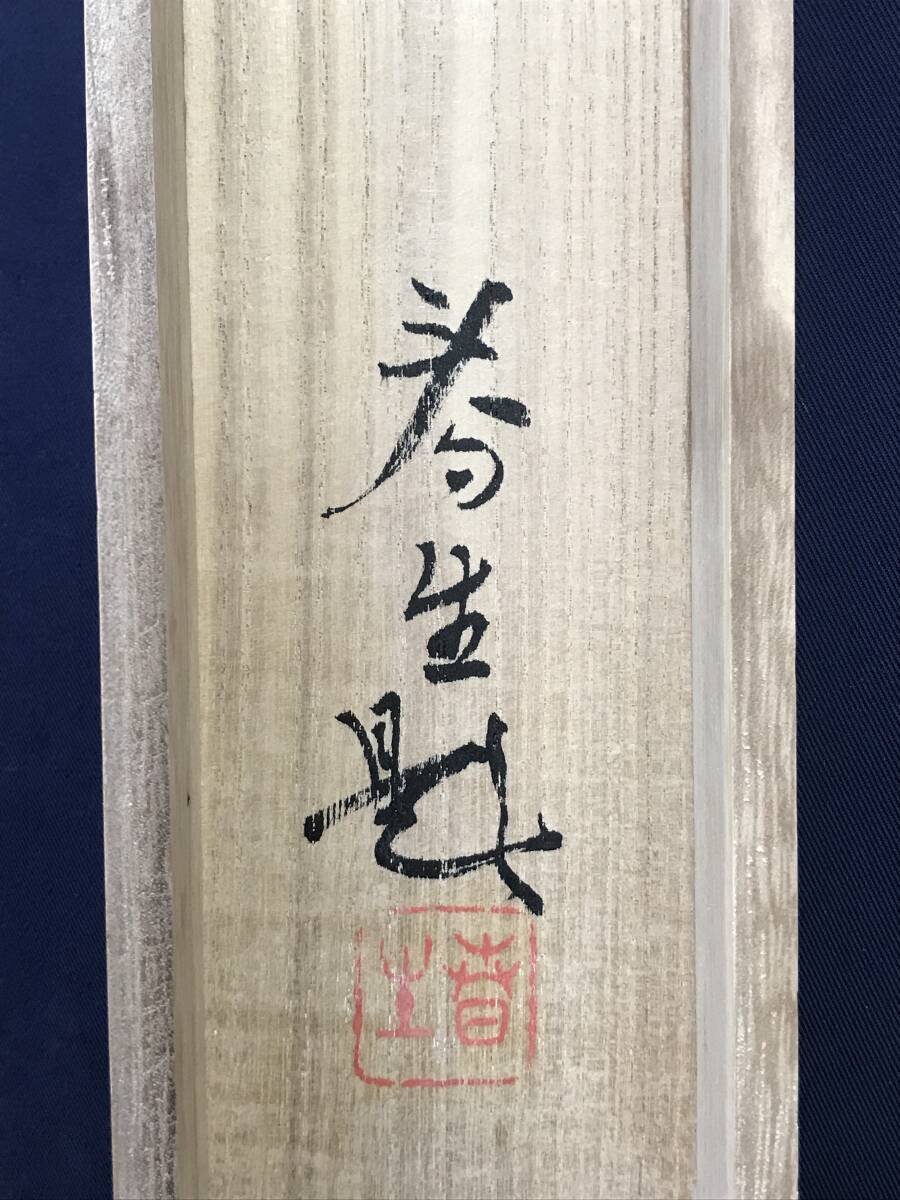 春生題
春生